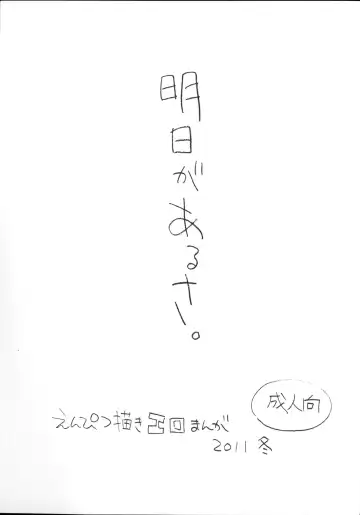 明日があるさー。
成人向
えんぴつ描き回まんが
2011 冬